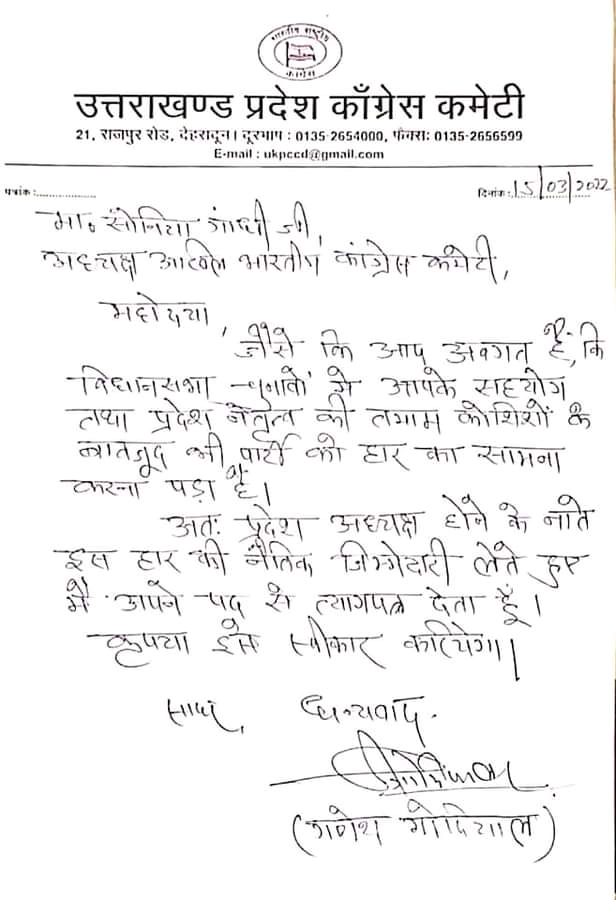 भारतीय राष्ट्रीय
काँग्रेस
उत्तराखण्ड प्रदेश काँग्रेस कमेटी
21, राजपुर रोड, देहरादून। दूरभाष : 0135-2654000, फैक्स: 0135-2656599
E-mail : ukpccd@gmail.com
पत्रांक :............... दिनांक: 15/03/2022
मा॰ सोनिया गांधी जी,
अध्यक्ष अखिल भारतीय कांग्रेस कमेटी,
महोदया,
जैसे कि आप अवगत हैं, कि
विधानसभा चुनावों मे आपके सहयोग
तथा प्रदेश नेतृत्व की तमाम कोशिशों के
बावजूद भी पार्टी को हार का सामना
करना पड़ा है।
अतः प्रदेश अध्यक्ष होने के नाते
इस हार की नैतिक जिम्मेदारी लेते हुए
मै अपने पद से त्यागपत्र देता हूँ।
कृपया इसे स्वीकार करियेगा।
सादर, धन्यवाद.
(गणेश गोदियाल)